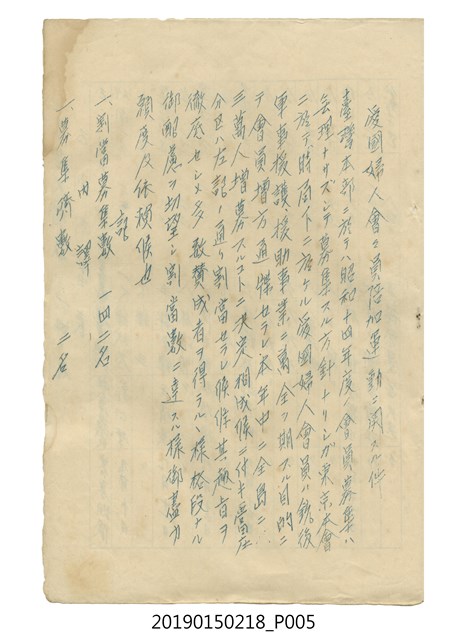 愛國婦人會々員倍加運動ニ関スル件
臺灣本部ニ於テハ昭和十四年度ノ會員募集ハ
無理ナリズシテ募集スル方針ナリシガ東京本會
ニ於テ時局下ニ於ケル愛國婦人會員ハ銃後
軍事援護援助事業ニ萬全ヲ期スル目的ニ
テ會員増方通牒セラレ本年中ニ全島ニ
三萬人増募スルコトニ決定相成候ニ付キ當庄
分区ハ左記ノ通リ割當セラレ候條其趣旨ヲ
徹底セシメ多数賛成者ヲ得ラルヽ様格段ナル
御配慮ヲ切望シ割當數ニ達スル様御盡力
願度及依頼候也
記
一、割當募集數 一四二名
内譯
一、募集済數 二名
20190150218_P005